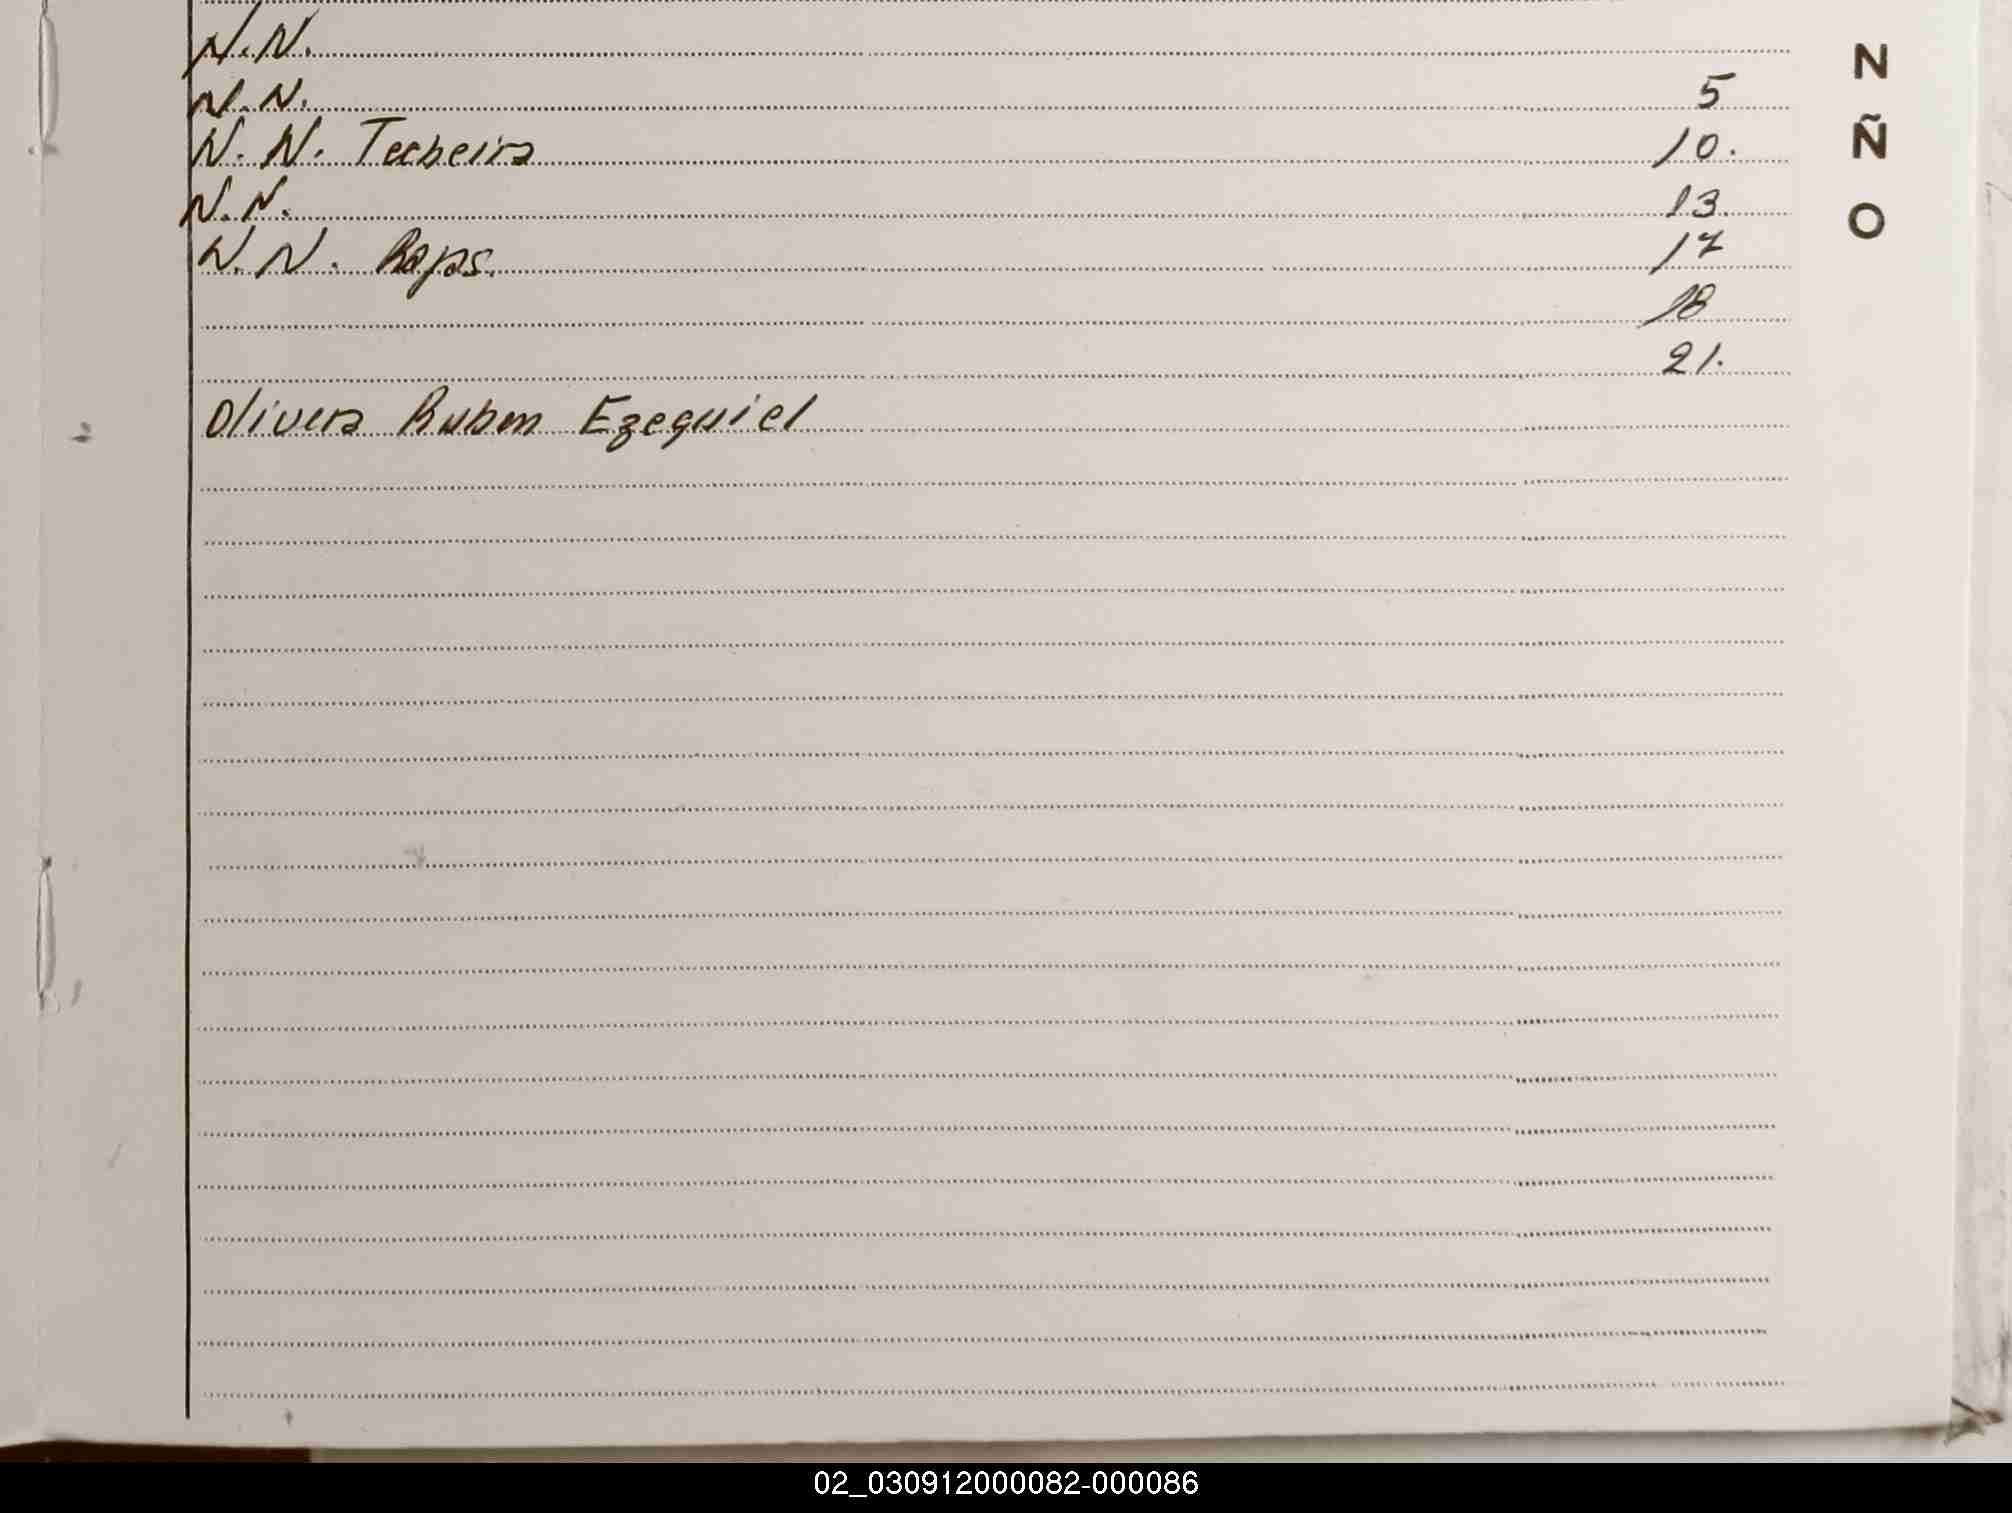 N.N.
N.N. 5
N.N. Tecbeira 10.
N.N. 13.
N.N. Rojas. 17
18
21.
Olivera Ruben Ezequiel
N
Ñ
O
02_030912000082-000086